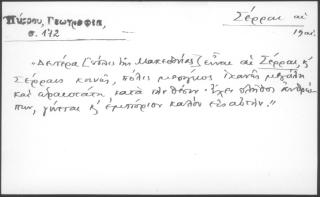 Πύρρου, Γεωγραφία,
σ. 172
Σέρραι αἱ
19 αἰ.
"Δευτέρα [πόλις τῆς Μακεδονίας] εἶναι αἱ Σέρραι, ἢ
Σέρραις κοινῶς, πόλις μεσόγειος ἱκανῶς μεγάλη
καὶ ὡραιοτάτη κατὰ τὴν θέσιν· ἔχει πλῆθος ἀνθρώ-
πων, γίνεται κ' ἐμπόριον καλὸν εἰς αὐτήν."